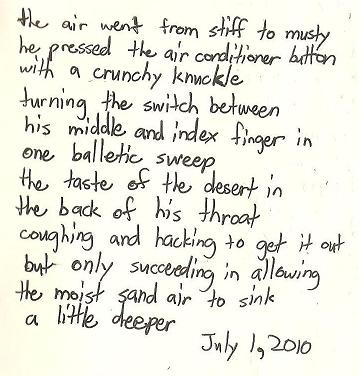 the air went from stiff to musty
he pressed the air conditioner button
with a crunchy knuckle
turning the switch between
his middle and index finger in
one balletic sweep
the taste of the desert in
the back of his throat
coughing and hacking to get it out
but only succeeding in allowing
the moist sand air to sink
a little deeper
July 1, 2010